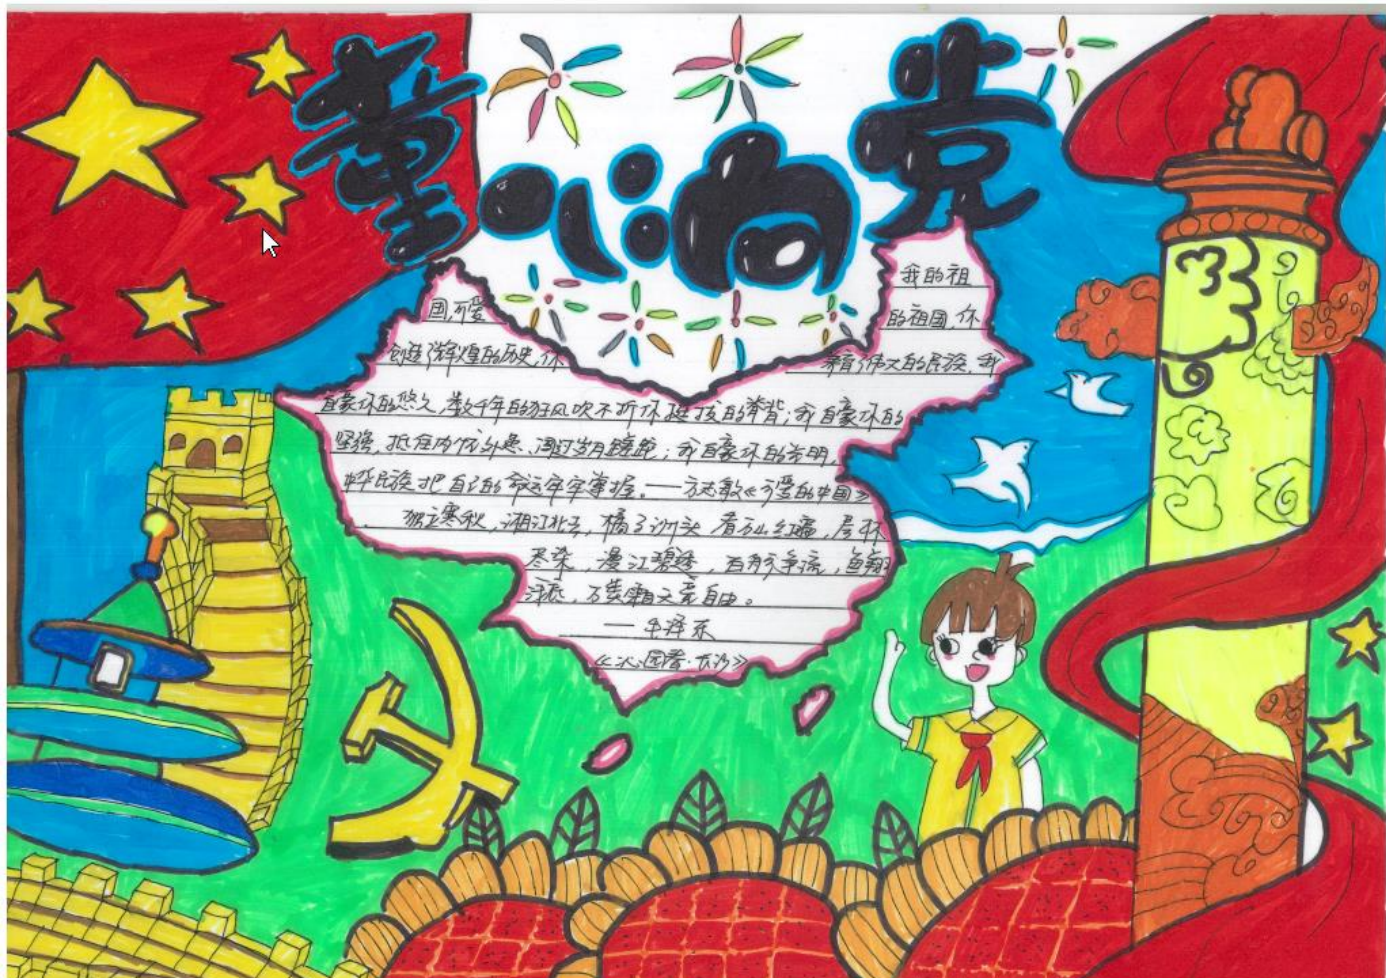 童心向党
我的祖
国,可爱 的祖国,你
创造了辉煌的历史,你 养育了伟大的民族,我
自豪你的悠久,数千年的狂风吹不折你挺拔的脊背;我自豪你的
坚强,抵住内忧外患,闯过岁月蹉跎;我自豪你的光明,
中华民族把自己的命运牢牢掌握。——方志敏《可爱的中国》
独立寒秋,湘江北去,橘子洲头,看万山红遍,层林
尽染,漫江碧透,百舸争流,鱼翔
浅底,万类霜天竞自由。
——毛泽东
《沁园春·长沙》